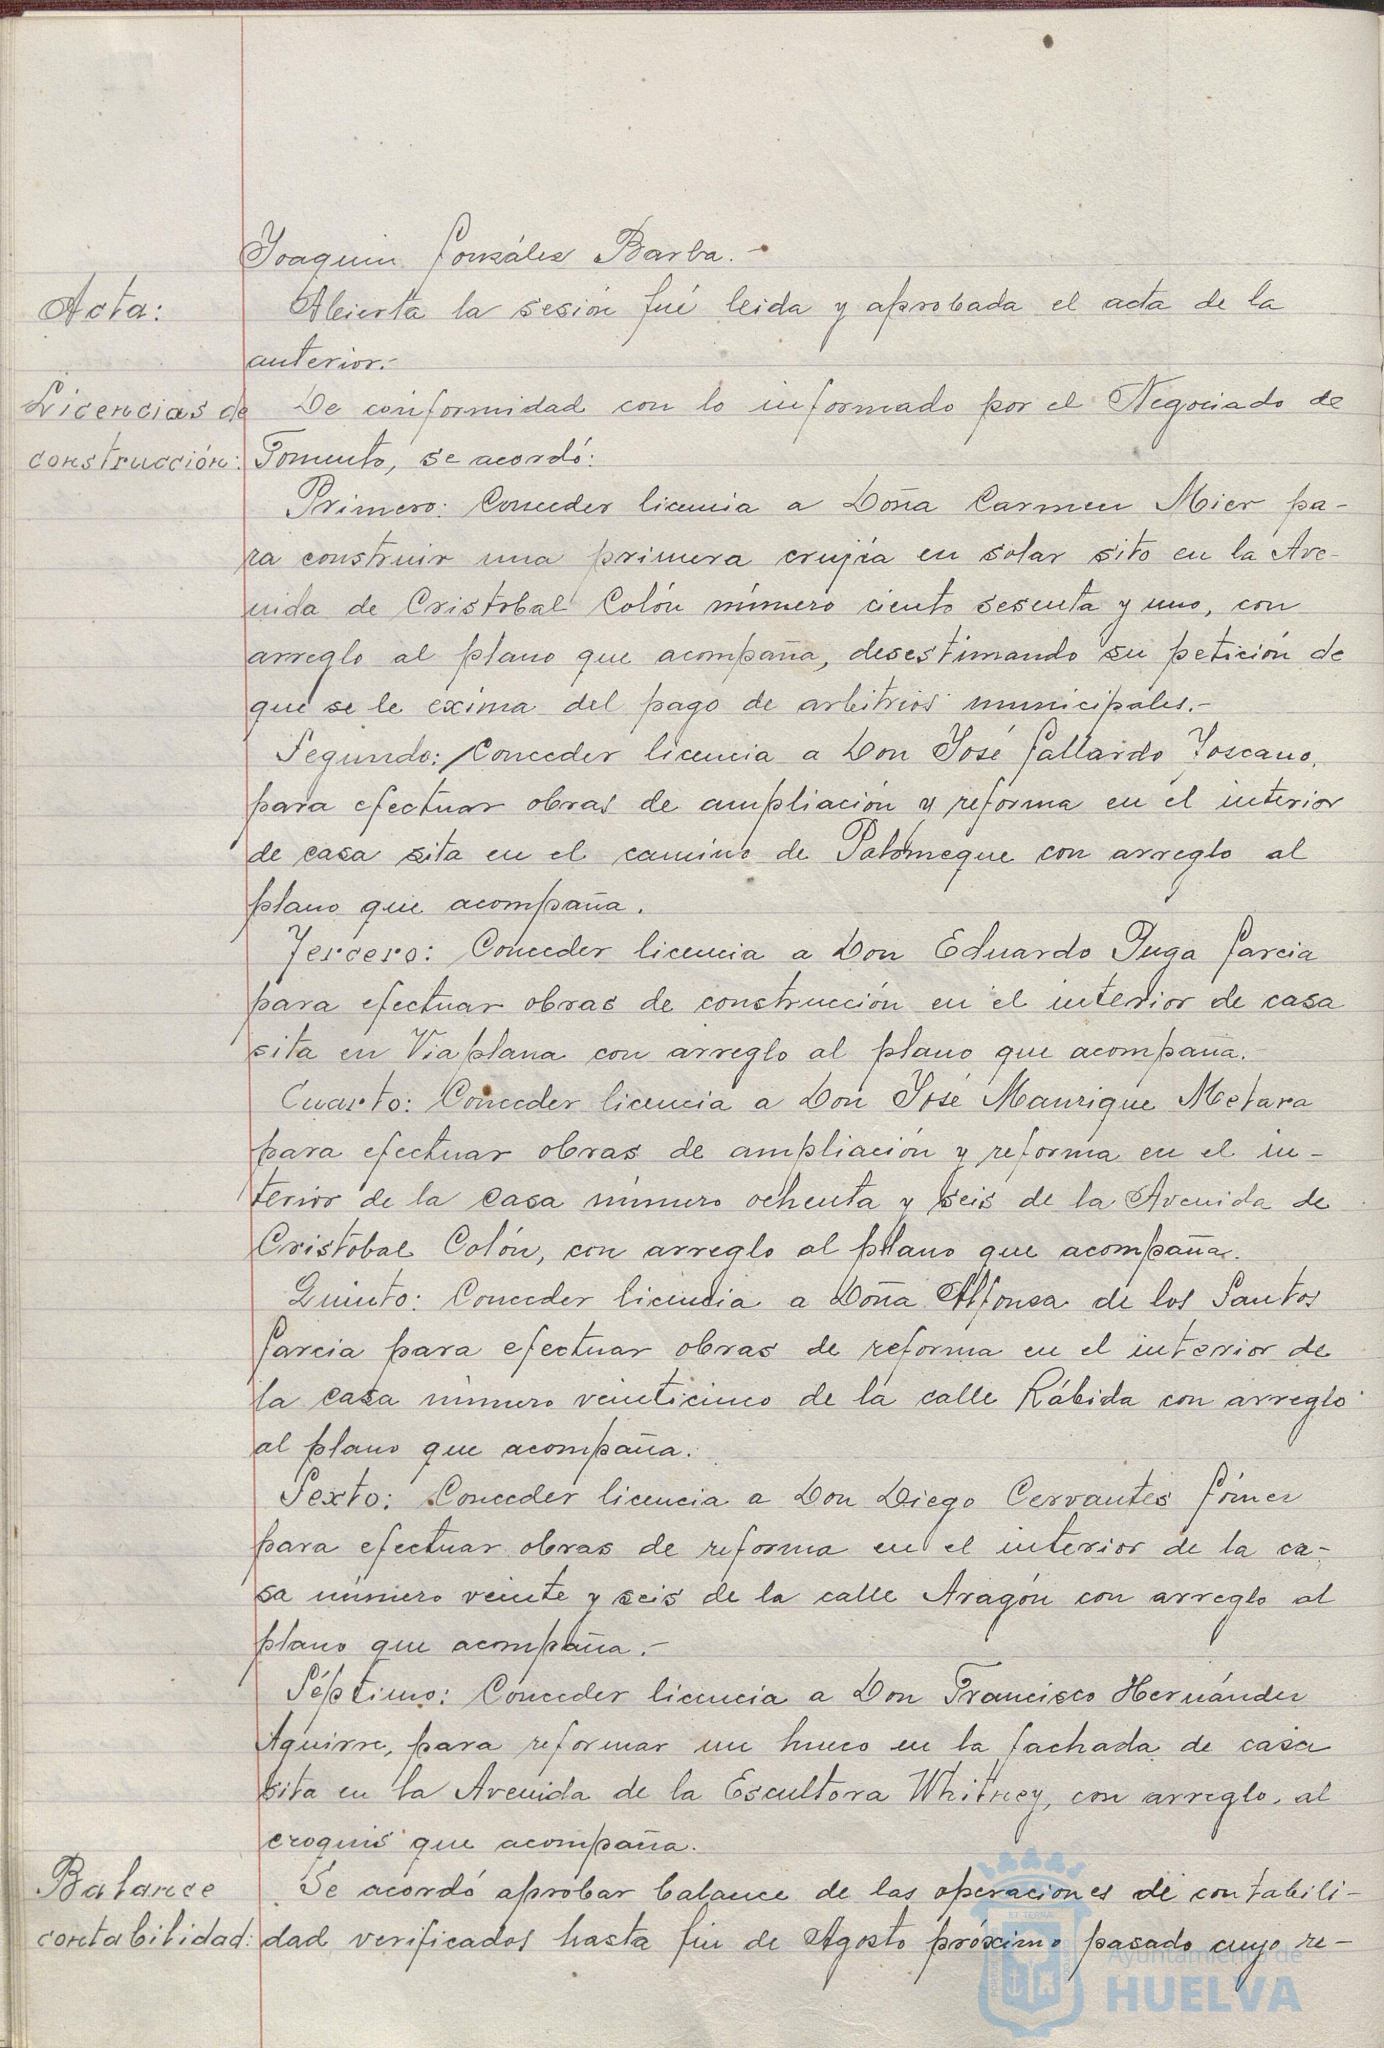 Joaquin González Barba.-
Acta:
Abierta la sesión fué leida y aprobada el acta de la
anterior.-
Licencias de
construcción:
De conformidad con lo informado por el Negociado de
Fomento, se acordó:
Primero: Conceder licencia a Doña Carmen Mier pa-
ra construir una primera crujía en solar sito en la Ave-
nida de Cristobal Colón número ciento sesenta y uno, con
arreglo al plano que acompaña, desestimando su petición de
que se le exima del pago de arbitrios municipales.-
Segundo: Conceder licencia a Don José Gallardo Toscano,
para efectuar obras de ampliación y reforma en el interior
de casa sita en el camino de Palomeque con arreglo al
plano que acompaña.
Tercero: Conceder licencia a Don Eduardo Puga Garcia
para efectuar obras de construcción en el interior de casa
sita en Viaplana con arreglo al plano que acompaña.
Cuarto: Conceder licencia a Don José Manrique
para efectuar obras de ampliación y reforma en el in-
terior de la casa número ochenta y seis de la Avenida de
Cristobal Colón, con arreglo al plano que acompaña.
Quinto: Conceder licencia a Doña Alfonsa de los Santos
Garcia para efectuar obras de reforma en el interior de
la casa número veinticinco de la calle Rábida con arreglo
al plano que acompaña.
Sexto: Conceder licencia a Don Diego Cervantes Gómez
para efectuar obras de reforma en el interior de la ca-
sa número veinte y seis de la calle Aragón con arreglo al
plano que acompaña.-
Séptimo: Conceder licencia a Don Francisco Hernández
Aguirre, para reformar un hueco en la fachada de casa
sita en la Avenida de la Escultora Whitney, con arreglo al
croquis que acompaña.
Balance
contabilidad:
Se acordó aprobar balance de las operaciones de contabili-
dad verificados hasta fin de Agosto próximo pasado cuyo re-
Ayuntamiento de
HUELVA